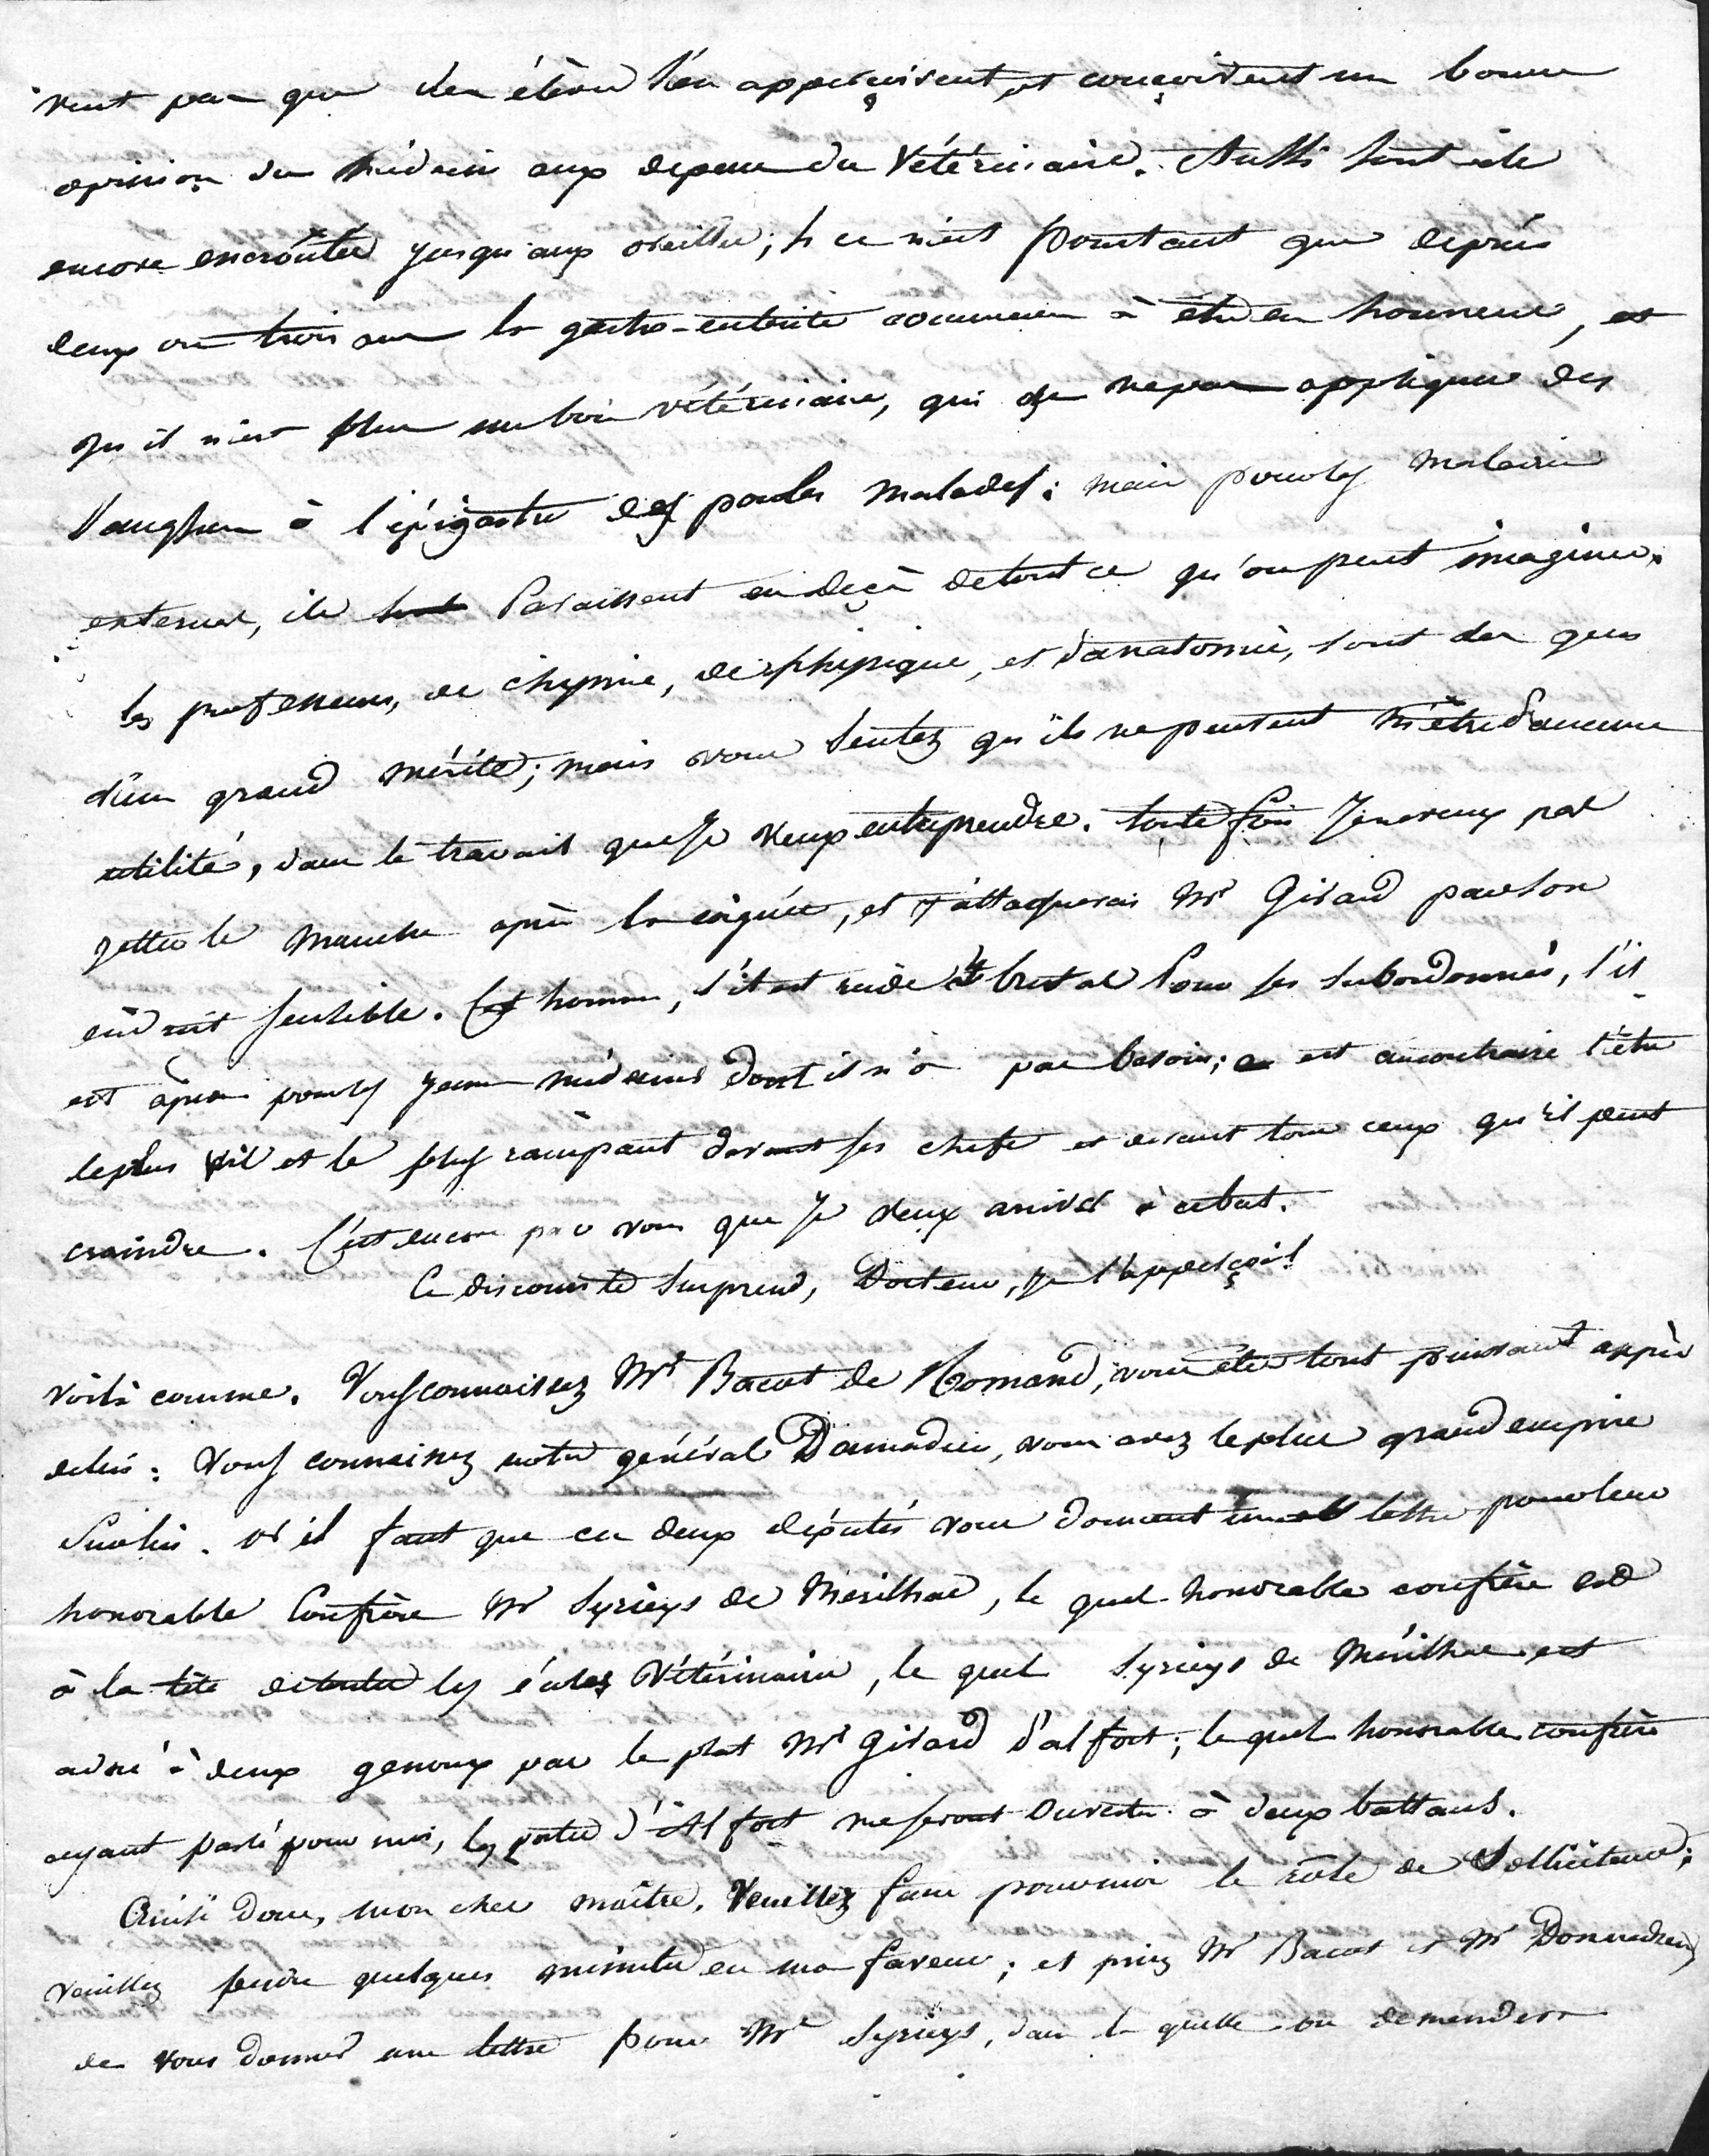 veut pas que les élèves s'en apperçoivent, et conçoivent une bonne
opinion du médecin aux depens du Vétérinaire. Aussi sont ils
encore encroûtés jusqu'aux oreilles; ce n'est pourtant que depuis
deux ou trois ans la gastro-entérite commence à être en honneur, et
qu'il n'est plus un bon vétérinaire, qui ne appliquer des
Sangsues à l'épigastre des poules malades: mais pour les maladies
externes, ils paraissent en deçà de tout ce qu'on peut imaginer.
les professeurs, de chymie, de phisique, et d'anatomie, sont des gens
d'un grand mérite; mais vous sentez qu'ils ne peuvent m'être d'aucune
utilité, dans le travail que je veux entreprendre. toute fois Je ne veux pas
jetter le manche après la coignée, et j'attaquerai Mr Girard par son
endroit sensible. Cet homme, s'il est rude et brutal Pour ses subordonnés, s'il
est âpre pour les jeunes médecins dont il n'a pas besoin; est au contraire l'être
le plus vil et le plus rampant devant ses chefs et devant tous ceux qu'il peut
craindre. C'est encore par vous que Je veux arriver à ce but.
Ce discours te surprend, Docteur, je l'apperçoi!
Voilà comme. Vous connaissez Mr Bacot de Romand, vous êtes tout puissant auprès
de lui: Vous connaissez notre général Donnadieu, vous avez le plus grand empire
Sur lui. or il faut que ces deux députés vous donnent une lettre pour leur
honorable Confrère Mr Syrieys de Meirilhac, le quel honorable confrère est
à la tête de toutes les écoles Vétérinaires, le quel Syrieys de Meirilhac est
adoré à deux genoux par le plat Mr Girard d'alfort; le quel honorable confrère
ayant parlé pour moi, les portes d'Alfort me seront Ouvertes à deux battans.
Ainsi donc, mon cher maître, Veuillez faire pour moi le rôle de Solliciteur;
veuillez perdre quelques minutes en ma faveur; et priez Mr Bacot et Mr Donnadieu
de vous donner une lettre pour Mr Syrieys, dans la quelle on demandera